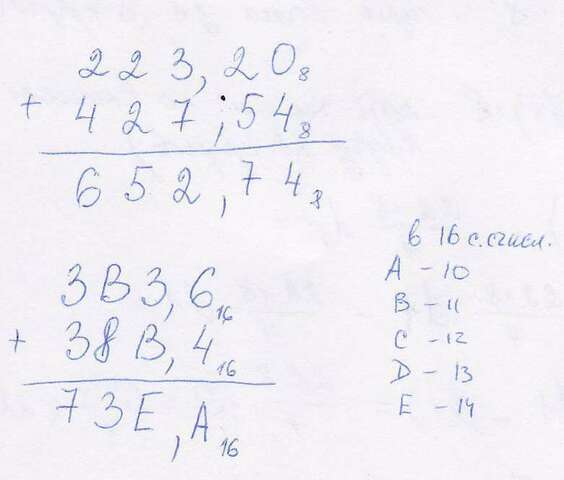 223,20₈
+ 427,54₈
652,74₈
3B3,6₁₆
+ 38B,4₁₆
73E,A₁₆
в 16 с.счисл.
A - 10
B - 11
C - 12
D - 13
E - 14